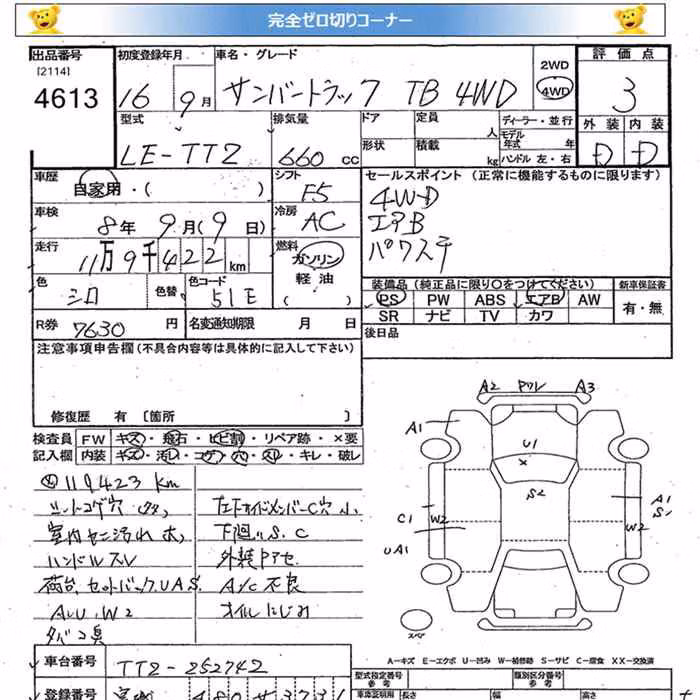 完全ゼロ切りコーナー
出品番号 初度登録年月 車名・グレード 2WD 評価点
[2114]
4613 16 9月 サンバートラック TB 4WD 4WD 3
型式 排気量 ドア 定員 人 ディーラー・並行 外装 内装
LE-TT2 660 cc 形状 積載 kg モデル年式 年 ハンドル 左・右 D D
車歴 自家用・( ) シフト F5 セールスポイント (正常に機能するものに限ります)
4WD
エアB
パワステ
車検 8年 9月(9日) 冷房 AC
走行 11万9千422km 燃料 ガソリン 軽油 ( )
装備品 (純正品に限り○をつけてください) 新車保証書
色 シロ 色替 色コード 51E PS PW ABS エアB AW 有・無
SR ナビ TV カワ
R券 7630円 名変通知期限 月 日 後日品
注意事項申告欄(不具合内容等は具体的に記入して下さい)
修復歴 有 〔箇所 〕
検査員 FW キズ・飛石・ヒビ割・リペア跡・×要
記入欄 内装 キズ・汚レ・コゲ・穴・スレ・キレ・破レ
119423km
シートコゲ穴
室内セニ汚れ
ハンドルスレ
荷台、セットバックUAS
AU、W2
タバコ臭
左下サイドメンバーC穴 小
下廻りS.C
外装Pアセ
A/C不良
オイルにじみ
A2 ワレ A3
A1
U1
×
S2
A1
S1
C1 W2 W2
UA1
スペア
A-キズ E-エクボ U-凹み W-補修跡 S-サビ C-腐食 XX-交換済
車台番号 TT2-252742
型式指定番号 参考 類別区分番号 参考
登録番号 480 3731 車庫証明用 長さ 幅 高さ